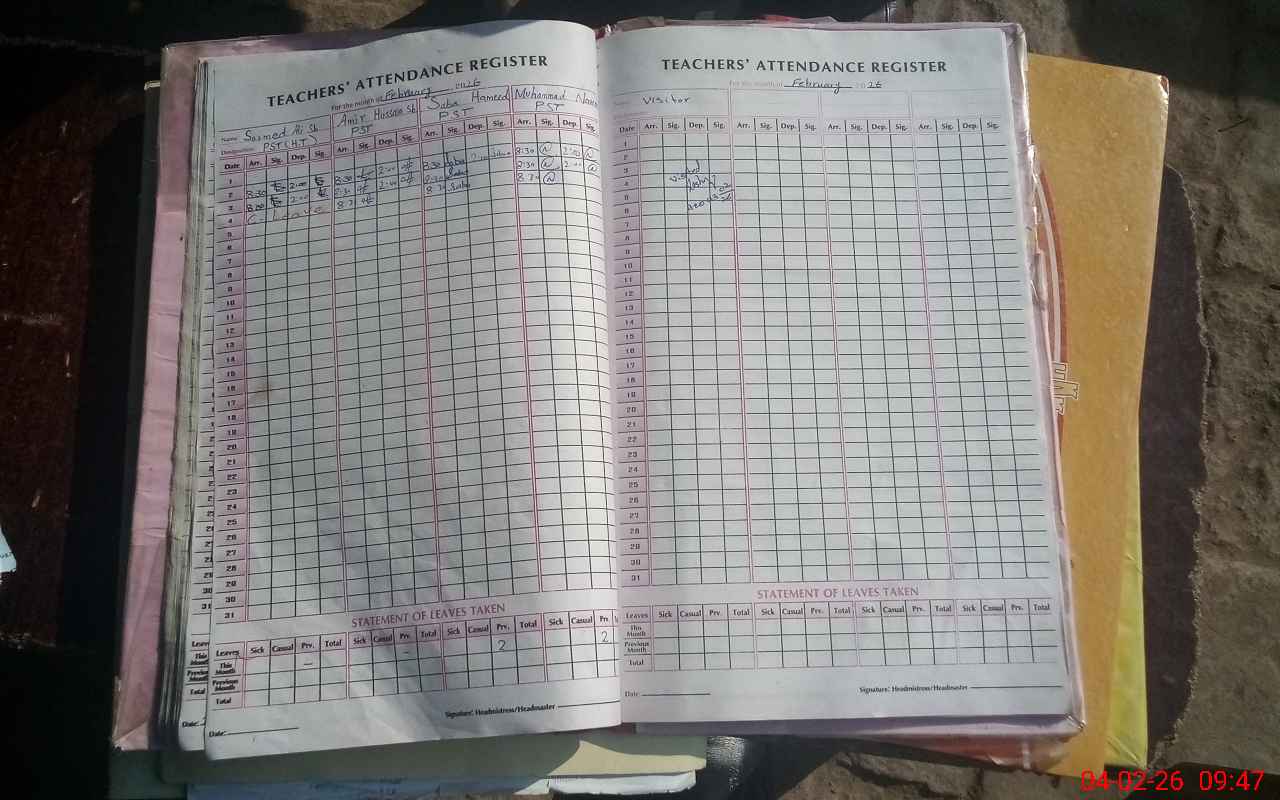 TEACHERS' ATTENDANCE REGISTER
For the month of February 2026
Name: Saimed Ali Sb Amir Hussain Sb Saba Hameed Muhammad
Designation: PST (H.T) PST PST PST
Date Arr. Sig. Dep. Sig. Arr. Sig. Dep. Sig. Arr. Sig. Dep. Sig. Arr. Sig. Dep. Sig.
1
2 8:30 2:00 8:30 2:00 8:30 Saba 2:00 8:30 N 2:00 N
3 8:30 2:00 8:30 2:00 8:30 Saba 8:30 N 2:00 N
4 C- Leave 8:30 8:30 Saba 8:30 N
5
6
7
8
9
10
11
12
13
14
15
16
17
18
19
20
21
22
23
24
25
26
27
28
29
30
31
STATEMENT OF LEAVES TAKEN
Leaves Sick Casual Prv. Total Sick Casual Prv. Total Sick Casual Prv. Total Sick Casual Prv.
This Month – – 2 2
Previous Month
Total
Signature: Headmistress/Headmaster
Date:
TEACHERS' ATTENDANCE REGISTER
For the month of February 2026
Name: Visitor
Date Arr. Sig. Dep. Sig. Arr. Sig. Dep. Sig. Arr. Sig. Dep. Sig. Arr. Sig. Dep. Sig.
1
2
3
4 Visited
5
6
7
8
9
10
11
12
13
14
15
16
17
18
19
20
21
22
23
24
25
26
27
28
29
30
31
STATEMENT OF LEAVES TAKEN
Leaves Sick Casual Prv. Total Sick Casual Prv. Total Sick Casual Prv. Total Sick Casual Prv. Total
This Month
Previous Month
Total
Date:
Signature: Headmistress/Headmaster
04-02-26 09:47